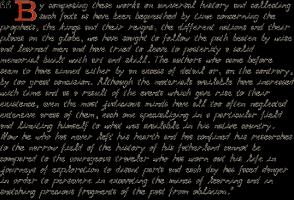 "By composing these works on universal history and collecting
such facts as have been bequeathed by time concerning the
prophets, the kings and their reigns, the different nations and their
places on the globe, we have sought to follow the path beaten by wise
and learned men and have tried to leave to posterity a solid
memorial built with art and skill. The authors who came before
seem to have sinned either by an excess of detail or, on the contrary,
by too great concision. Although the materials available have increased
with time and as a result of the events which gave rise to their
existence, even the most judicious minds have all too often neglected
extensive areas of them, each one specializing in a particular field
and limiting himself to what was available in his native country.
Now he who has never left his hearth and has confined his researches
to the narrow field of the history of his fatherland cannot be
compared to the courageous traveler who has worn out his life in
journeys of exploration to distant parts and each day has faced danger
in order to persevere in excavating the mines of learning and in
snatching precious fragments of the past from oblivion."